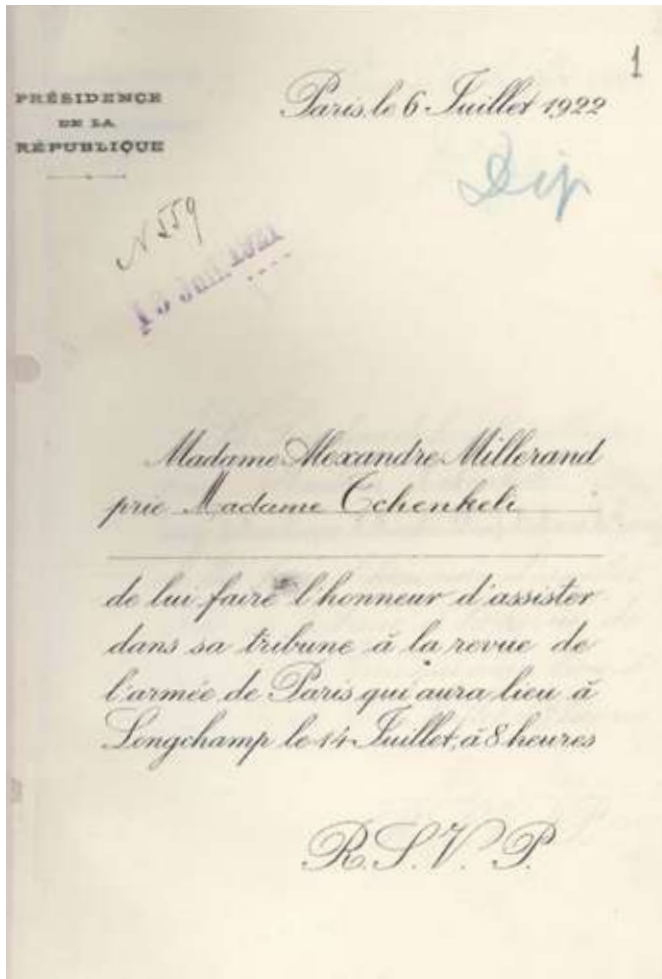 1
PRÉSIDENCE
DE LA
RÉPUBLIQUE
Paris, le 6 Juillet 1922
Dip
N 559
Madame Alexandre Millerand
prie Madame Tchenkeli
de lui faire l'honneur d'assister
dans sa tribune à la revue de
l'armée de Paris qui aura lieu à
Longchamp le 14 Juillet, à 8 heures
R.S.V.P.